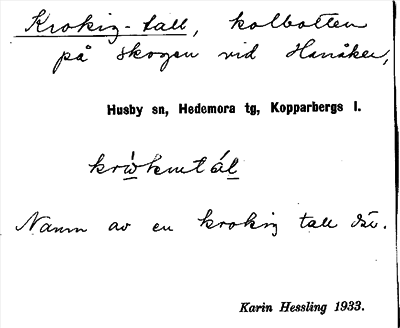 Krokig-tall, kolbotten
på skogen vid Hanåker,
Husby sn, Hedemora tg, Kopparbergs l.
Namn av en krokig tall där.
Karin Hessling 1933.